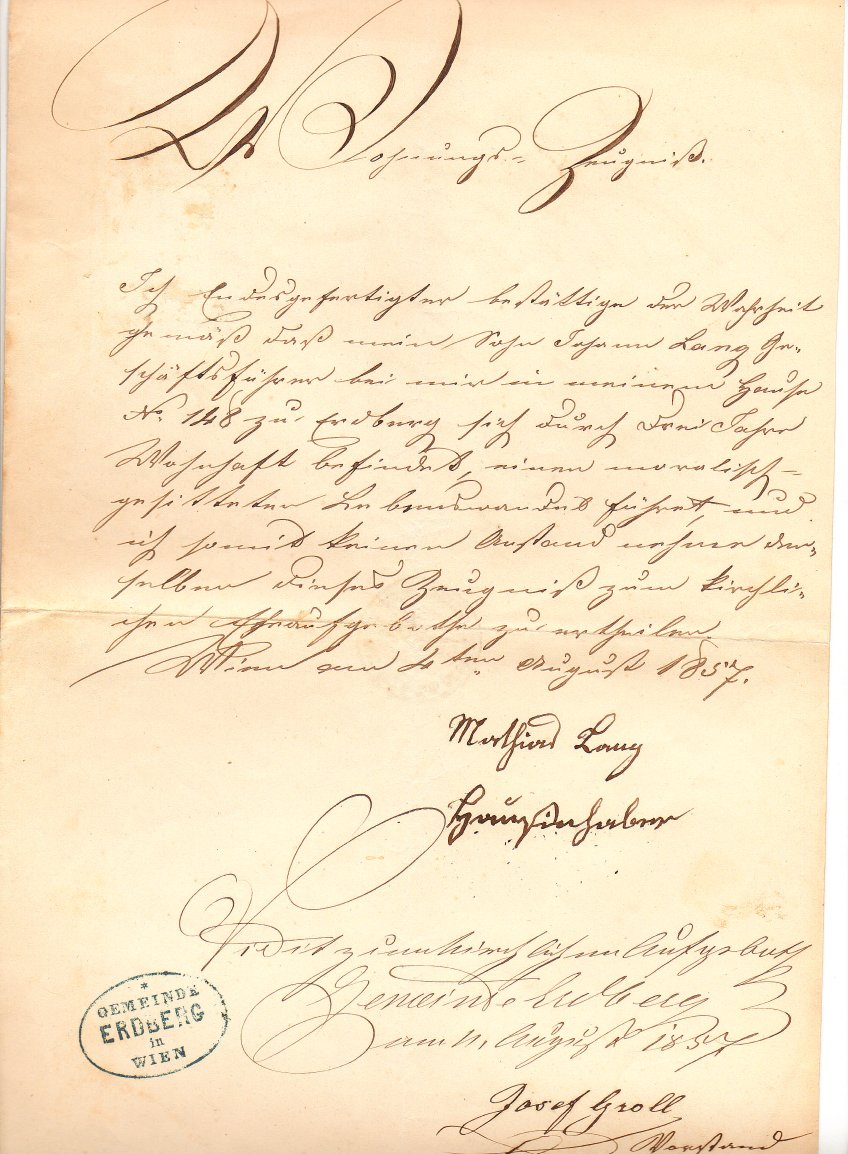 Wohnungs- Zeugniß.
Ich Endesgefertigter bestättige der Wahrheit
gemäß daß mein Sohn Johann Lang Ge-
schäftsführer bei mir in meinem Hause
No. 148 zu Erdberg sich durch drei Jahre
Wohnhaft befindet, einen moralisch-
gesitteten Lebenswandel führet, und
ich somit keinen Anstand nehme dem-
selben dieses Zeugniß zum kirchli-
chen Eheaufgebothe zu ertheilen.
Wien am 4ten August 1857.
Mathias Lang
Hausinhaber
Vidit zum kirchlichen Aufgeboth
Gemeinde Erdberg
am 11. August 1857
Josef Groll
Vorstand
GEMEINDE
ERDBERG
in
WIEN